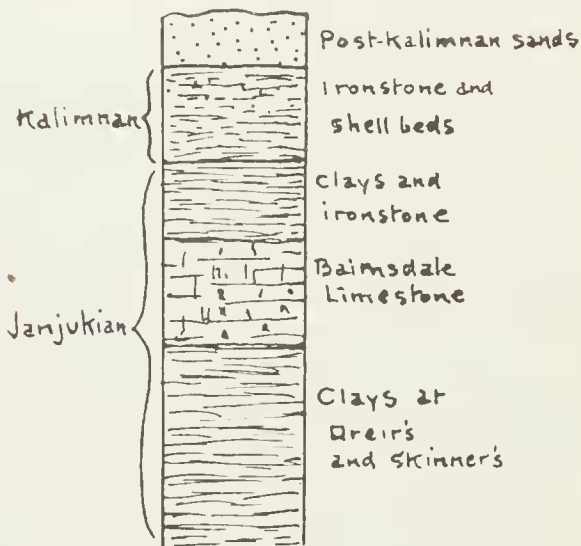 Post-Kalimnan sands
Kalimnan
Ironstone and
shell beds
Clays and
ironstone
Bairnsdale
Limestone
Janjukian
Clays at
Dreir's
and Skinner's